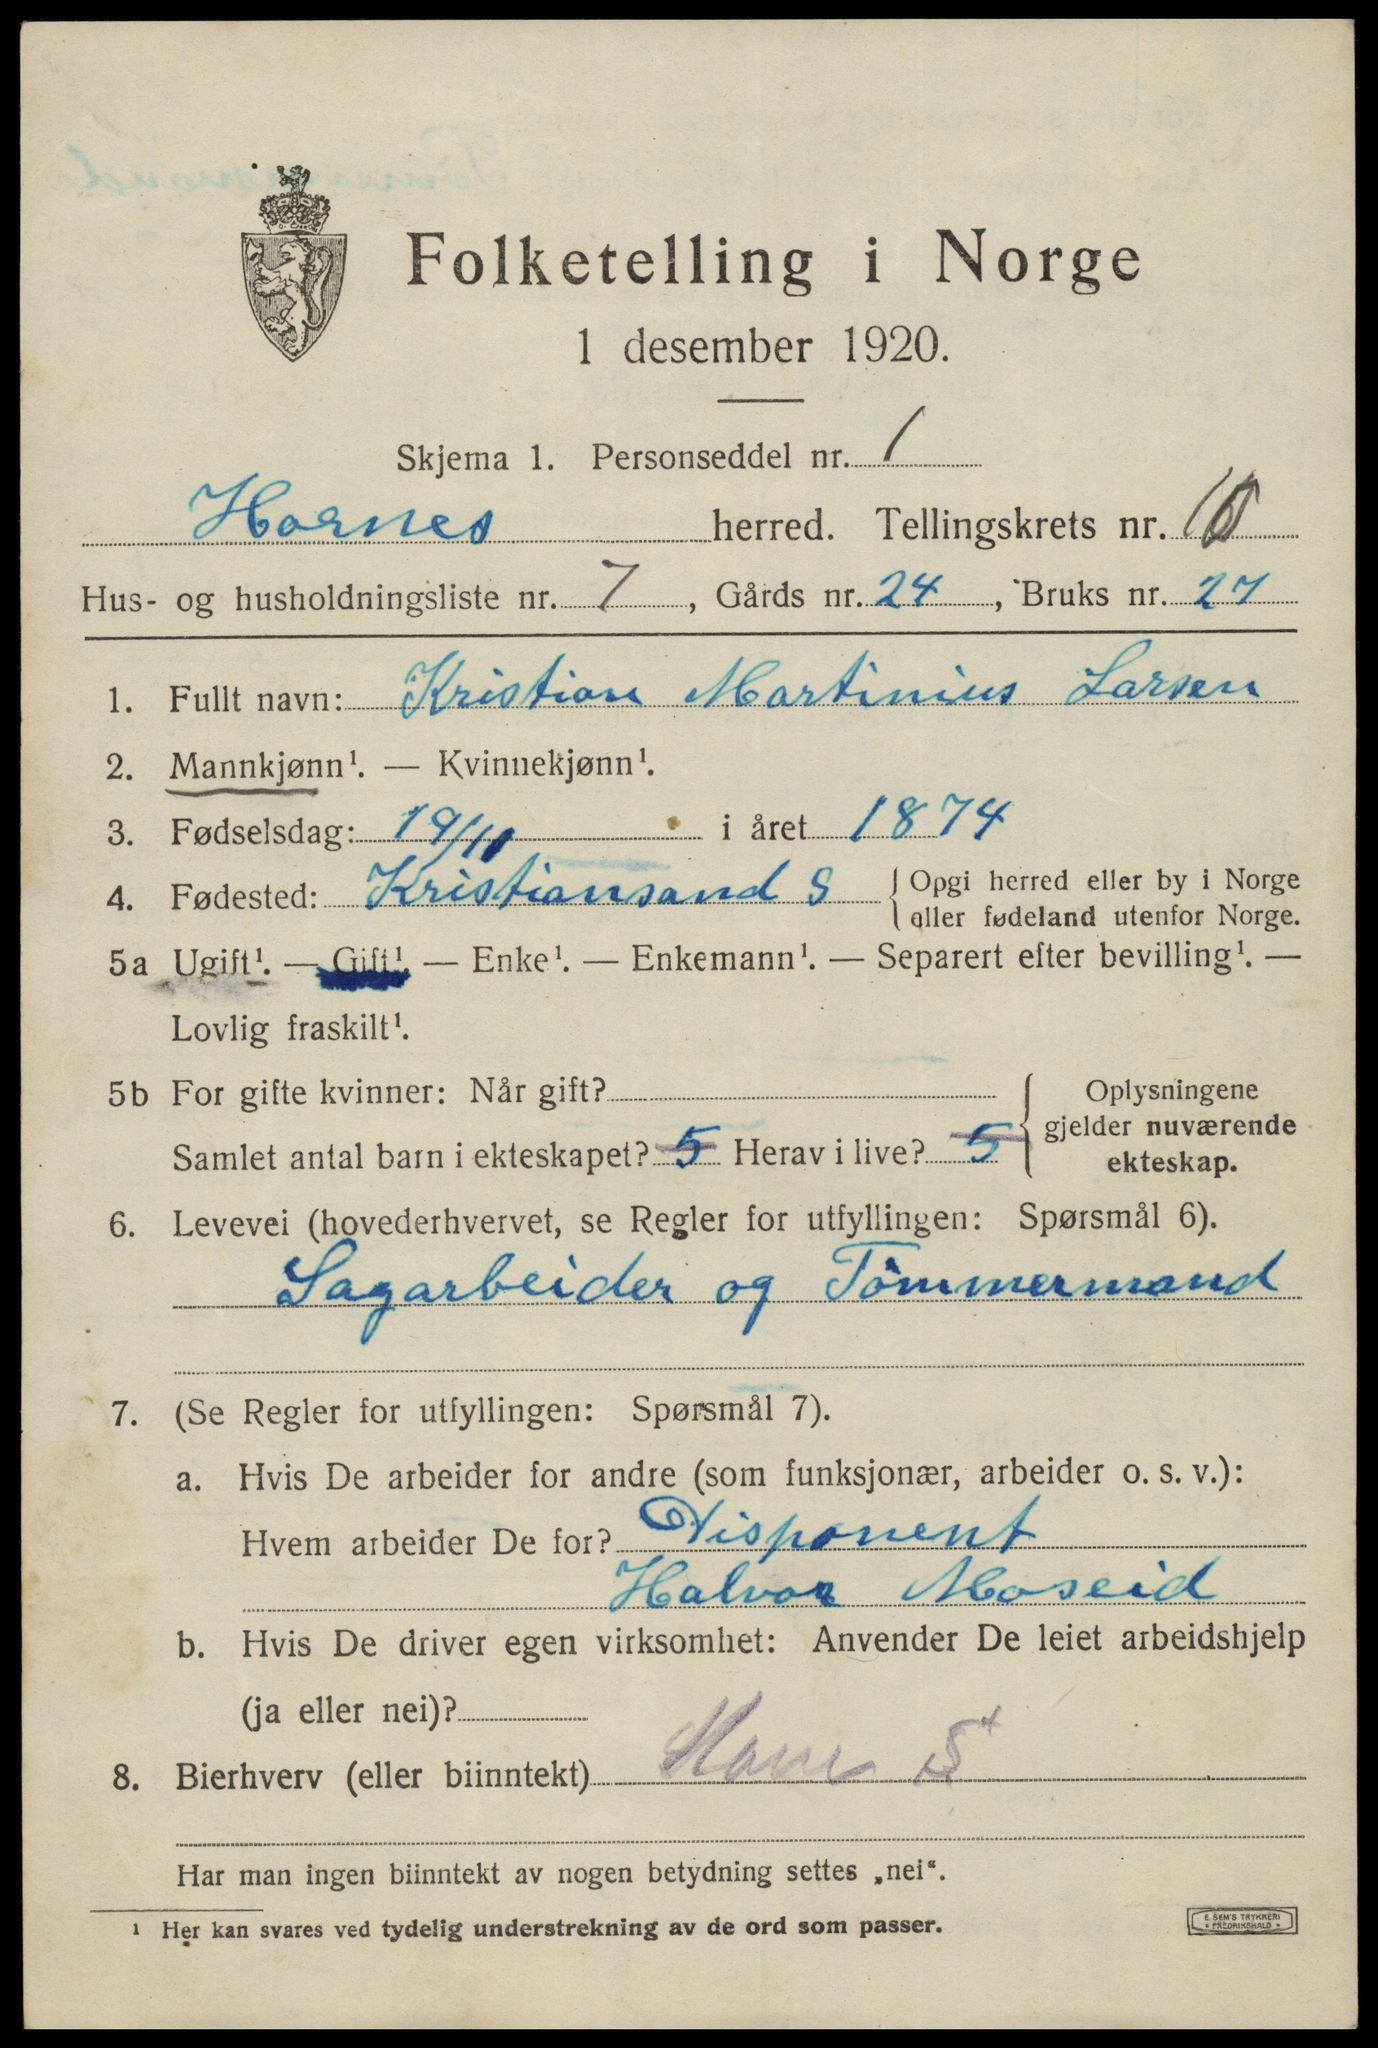 Folketelling i Norge
1 desember 1920.
Skjema 1. Personseddel nr. 1
Hornes herred. Tellingskrets nr.
Hus- og husholdningsliste nr. 7, Gårds nr. 24, Bruks nr. 27
1. Fullt navn: Kristian Martinius Larsen
2. Mannkjønn¹. — Kvinnekjønn¹.
3. Fødselsdag: 19/11 i året 1874
4. Fødested: Kristiansand S { Opgi herred eller by i Norge
eller fødeland utenfor Norge.
5a Ugift¹. — Gift¹ — Enke¹. — Enkemann¹. — Separert efter bevilling¹. —
Lovlig fraskilt¹.
5b For gifte kvinner: Når gift?
Samlet antal barn i ekteskapet? 5 Herav i live? 5
Oplysningene
gjelder nuværende
ekteskap.
6. Levevei (hovederhvervet, se Regler for utfyllingen: Spørsmål 6).
Sagarbeider og Tömmermand
7. (Se Regler for utfyllingen: Spørsmål 7).
a. Hvis De arbeider for andre (som funksjonær, arbeider o. s. v.):
Hvem arbeider De for? Disponent
Halvor Moseid
b. Hvis De driver egen virksomhet: Anvender De leiet arbeidshjelp
(ja eller nei)?
8. Bierhverv (eller biinntekt)
Har man ingen biinntekt av nogen betydning settes „nei“.
¹ Her kan svares ved tydelig understrekning av de ord som passer.
E. SEM'S TRYKKERI
FREDRIKSHALD